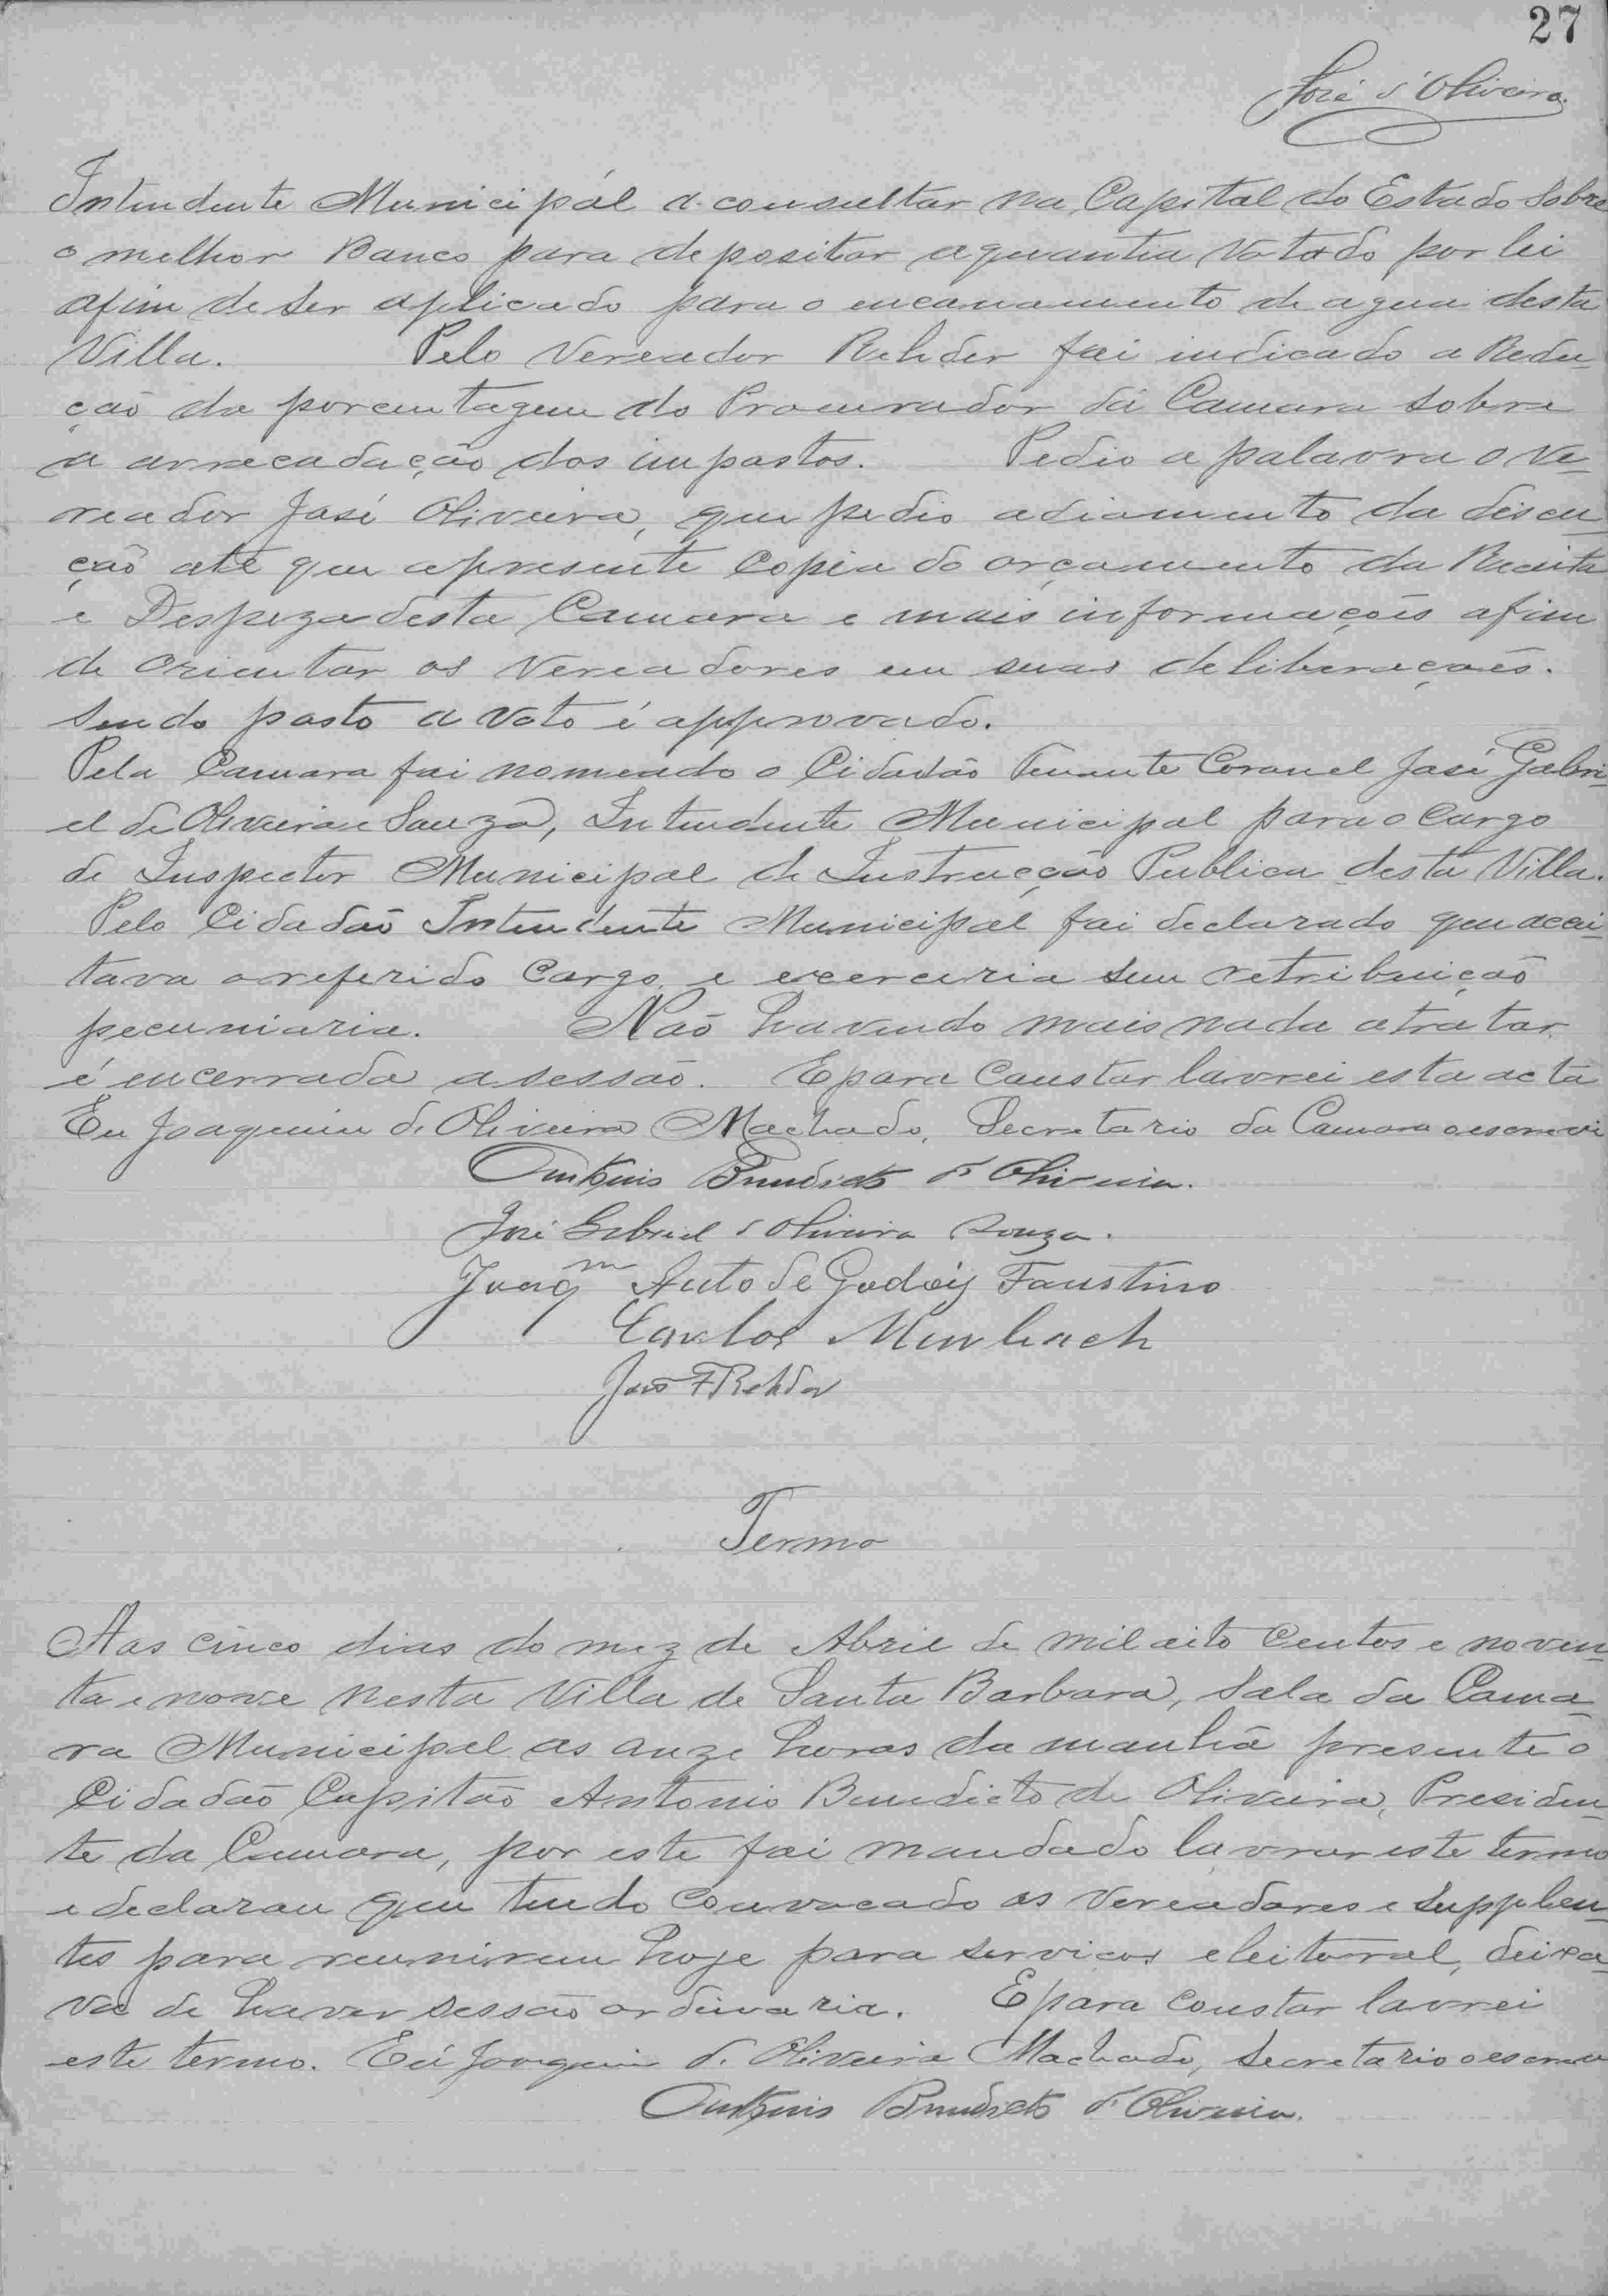 27
José d'Oliveira
Intendente Municipal a consultar na Capital do Estado sobre
o melhor Banco para depositar a quantia votado por lei
afim de ser aplicado para o encanamento de agua desta
Villa. Pelo Vereador Rehder foi indicado a Redu-
ção da porcentagem do Procurador da Camara sobre
a arrecadação dos impostos. Pedio a palavra o Ve-
reador José Oliveira, que pedio adiamento da discu-
ção até que apresente copia do orçamento da Receita
e Despeza desta Camara e mais informações afim
de orientar os Vereadores em suas deliberações.
Sendo posto a voto é approvado.
Pela Camara foi nomeado o Cidadão Tenente Coronel José Gabri-
el de Oliveira e Souza, Intendente Municipal para o Cargo
de Inspector Municipal de Instrucção Publica desta Villa.
Pelo Cidadão Intendente Municipal foi declarado que acei-
tava o referido Cargo e exerceria sem retribuição
pecuniaria. Não havendo mais nada a tratar
é encerrada a sessão. E para constar lavrei esta acta
Eu Joaquim de Oliveira Machado, Secretario da Camara o escrevi
Antonio Benedicto d'Oliveira.
José Gabriel d'Oliveira Souza.
Joaqm Auto de Godoy Faustino
Carlos
João F Rehder
Termo
Aos cinco dias do mez de Abril de mil oito centos e noven-
ta e nove nesta Villa de Santa Barbara, sala da Cama-
ra Municipal as onze horas da manhã presente o
Cidadão Capitão Antonio Benedicto de Oliveira, Presiden-
te da Camara, por este foi mandado lavrar este termo
e declarou que tendo convocado os Vereadores e supplen-
tes para reunirem hoje para serviços eleitorral, deixa-
va de haver sessão ordinaria. E para constar lavrei
este termo. Eu Joaquim d. Oliveira Machado, secretario o escrevi
Antonio Benedicto d'Oliveira.